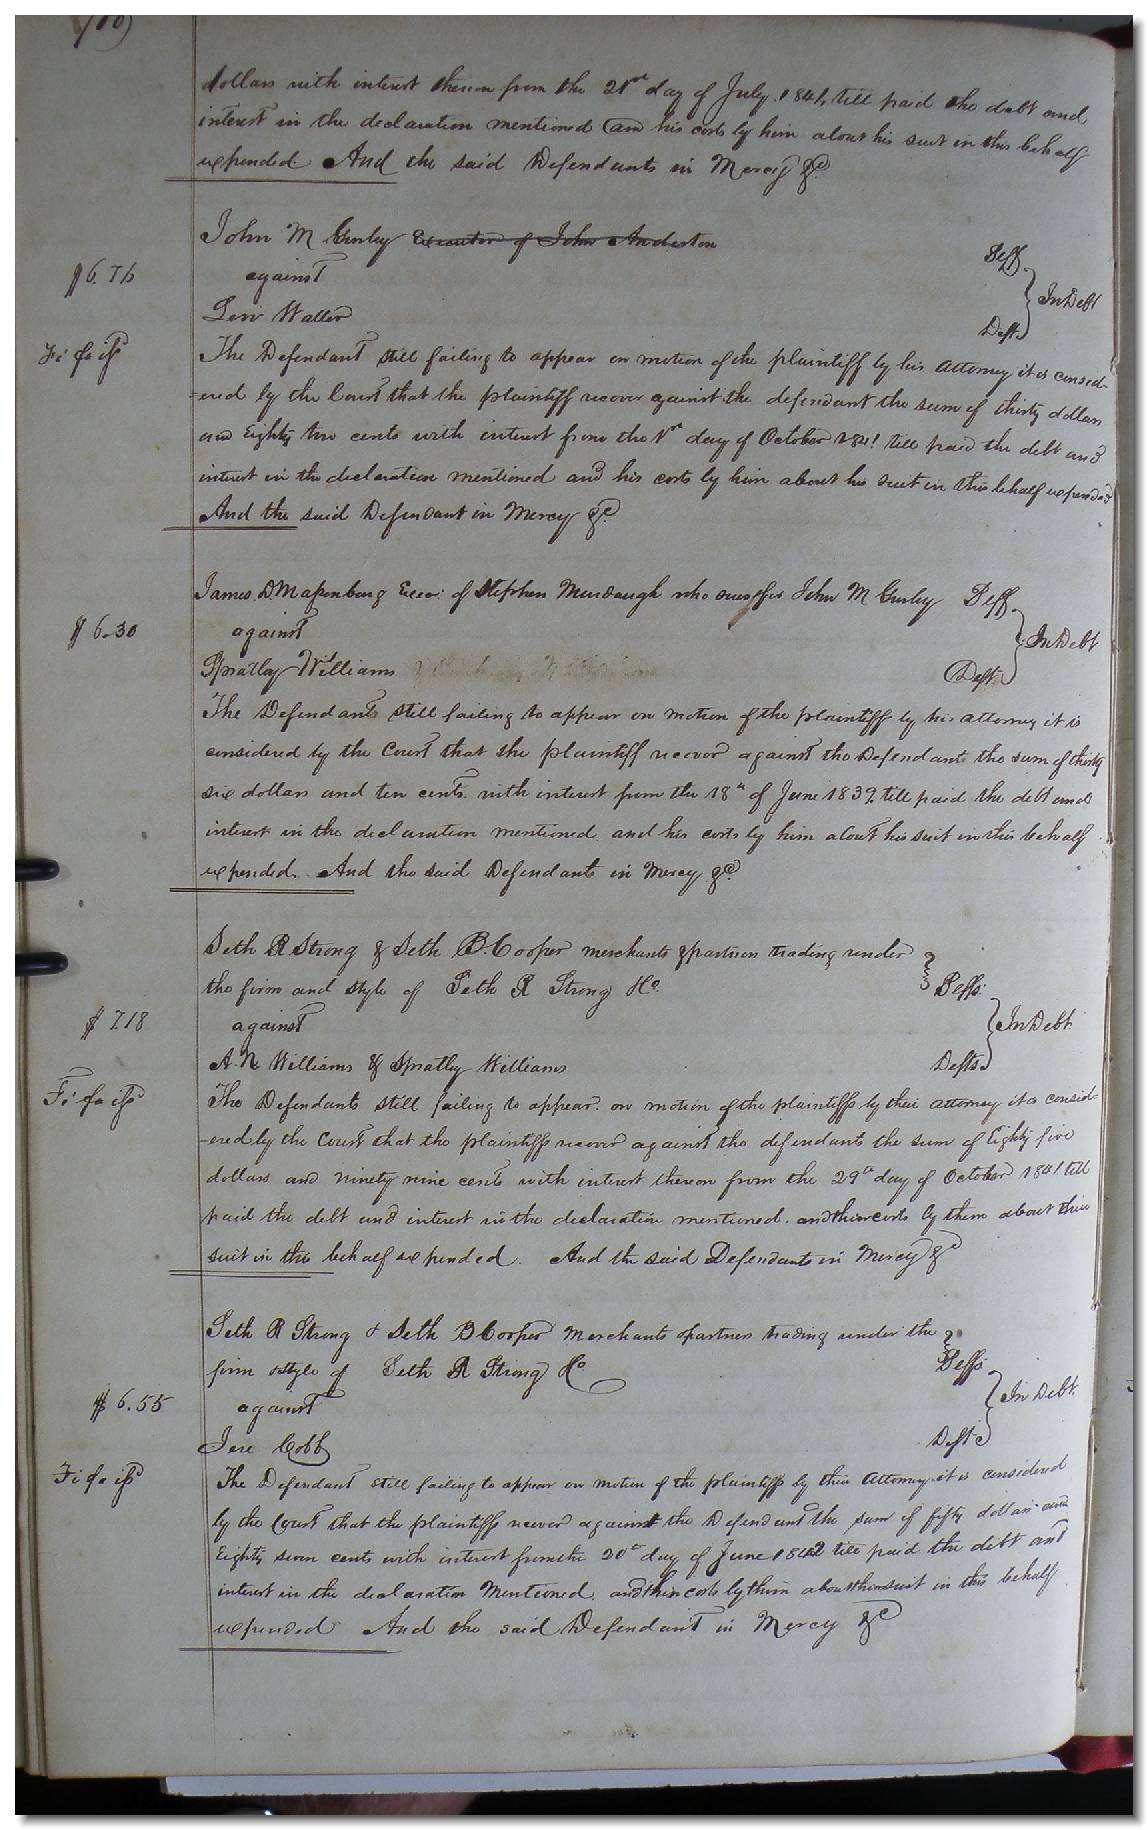 dollars with interest thereon from the 21st day of July 1841, till paid the debt and
interest in the declaration mentioned and his costs by him about his suit in this behalf
expended And the said Defendants in Mercy &c
John M Gurley Executor of John Anderson Plff
$6.76
against In Debt
Levi Waller Deft
Fi fa iss
The Defendant still failing to appear on motion of the plaintiff by his attorney it is consid-
-ered by the Court that the plaintiff recover against the defendant the sum of thirty dollars
and Eighty two cents with interest from the 1st day of October 1841 till paid the debt and
interest in the declaration mentioned and his costs by him about his suit in this behalf expended
And the said Defendant in Mercy &c
James D Massenburg Exor: of Stephen Murdaugh who sues for John M Gurley Plff
$6.30
against In Debt
Spratley Williams Deft
The Defendants still failing to appear on motion of the plaintiff by his attorney it is
considered by the Court that the plaintiff recover against the Defendants the sum of thirty
six dollars and ten cents with interest from the 18th of June 1839 till paid the debt and
interest in the declaration mentioned and his costs by him about his suit in this behalf
expended. And the said Defendants in Mercy &c
Seth R Strong & Seth B. Cooper merchants & partners trading under
the firm and style of Seth R Strong & Co Plffs
$7.18
against In Debt
A. N. Williams & Spratley Williams Defts
Fi fa iss
The Defendants still failing to appear. on motion of the plaintiffs by their attorney it is consid-
-ered by the Court that the plaintiffs recover against the defendants the sum of Eighty five
dollars and ninety nine cents with interest thereon from the 29th day of October 1841 till
paid the debt and interest in the declaration mentioned. and their costs by them about their
suit in this behalf expended. And the said Defendants in Mercy &c
Seth R Strong & Seth B Cooper Merchants & partners trading under the
firm & style of Seth R Strong & Co Plffs
$6.55
against In Debt
Jere Cobb Deft
Fi fa iss
The Defendant still failing to appear on motion of the plaintiffs by their attorney it is considered
by the Court that the plaintiffs recover against the Defendant the sum of fifty dollars and
Eighty seven cents with interest from the 20th day of June 1842 till paid the debt and
interest in the declaration Mentioned. and their costs by them about their suit in this behalf
expended And the said Defendant in Mercy &c